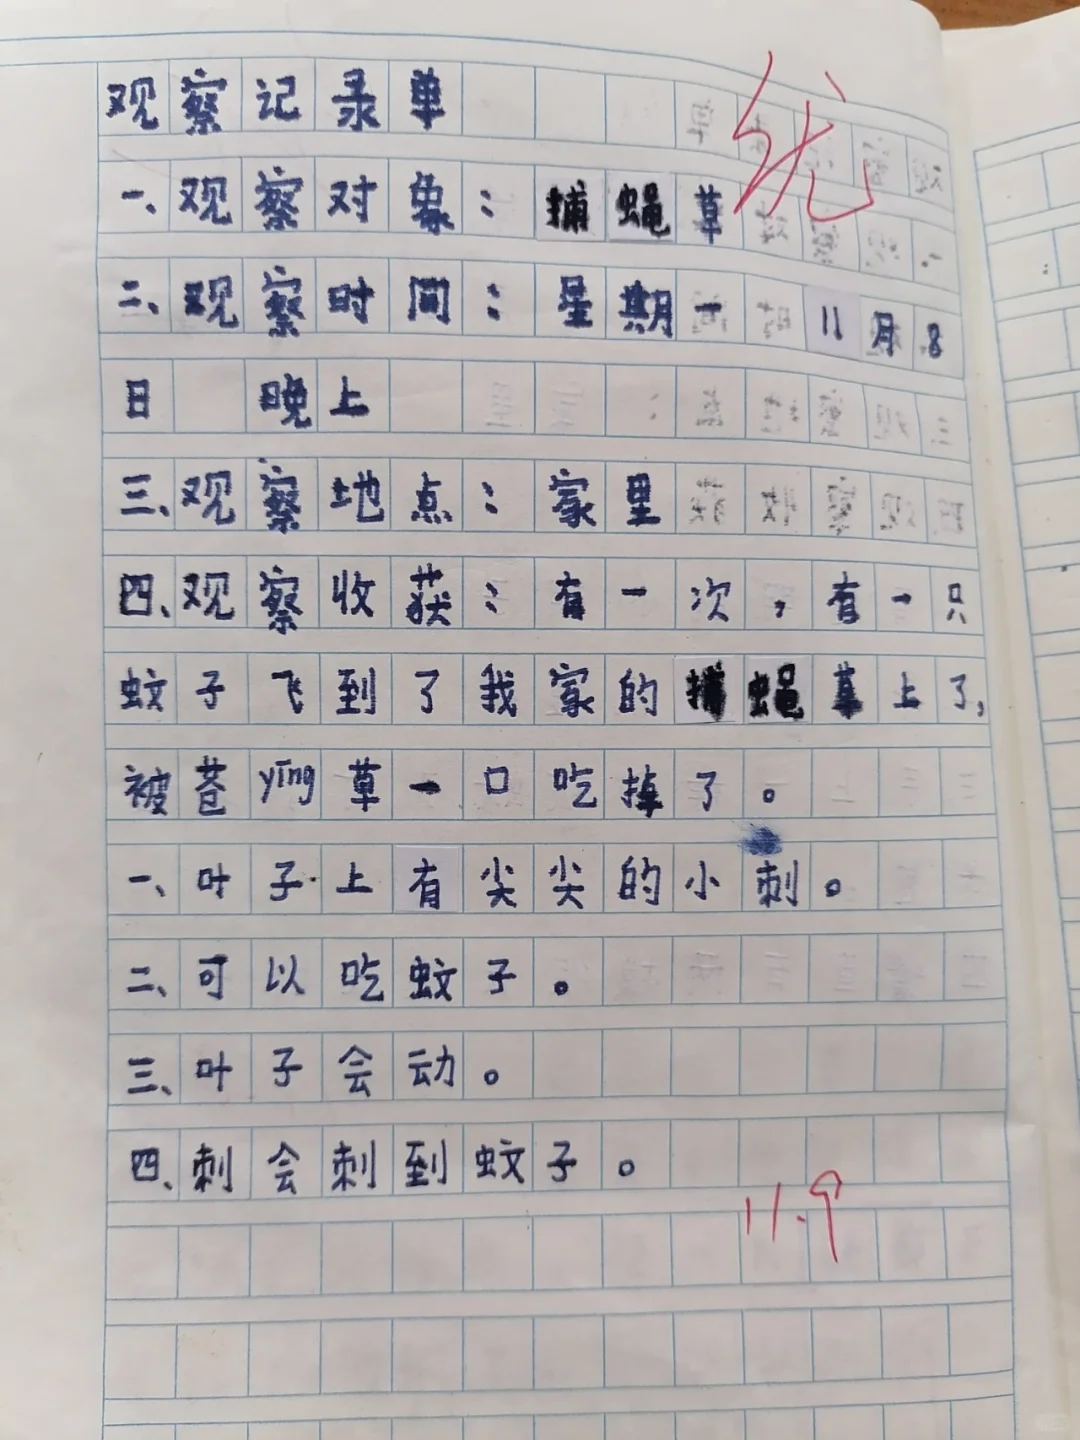 观察记录单
优
一、观察对象：捕蝇草
二、观察时间：星期一 11月8
日 晚上
三、观察地点：家里
四、观察收获：有一次，有一只
蚊子飞到了我家的捕蝇草上了，
被苍yīng草一口吃掉了。
一、叶子上有尖尖的小刺。
二、可以吃蚊子。
三、叶子会动。
四、刺会刺到蚊子。
11.9